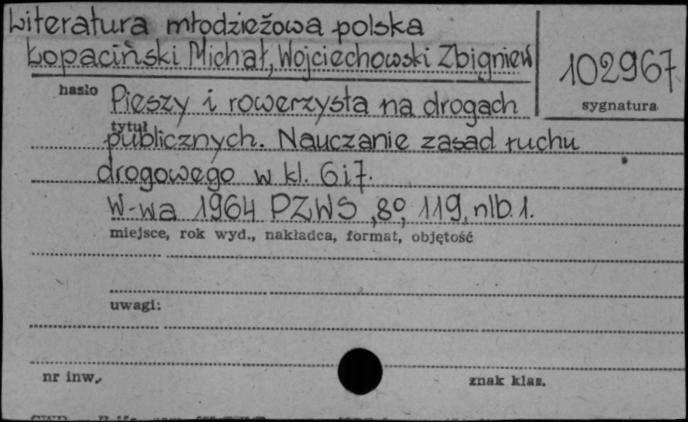 Literatura młodzieżowa polska
Łopaciński Michał, Wojciechowski Zbigniew
102967
hasło
sygnatura
Pieszy i rowerzysta na drogach
tytuł
publicznych. Nauczanie zasad ruchu
drogowego w kl. 6 i 7.
W-wa 1964 PZWS, 8°, 119, nlb. 1.
miejsce, rok wyd., nakładca, format, objętość
uwagi:
nr inw.
znak klas.